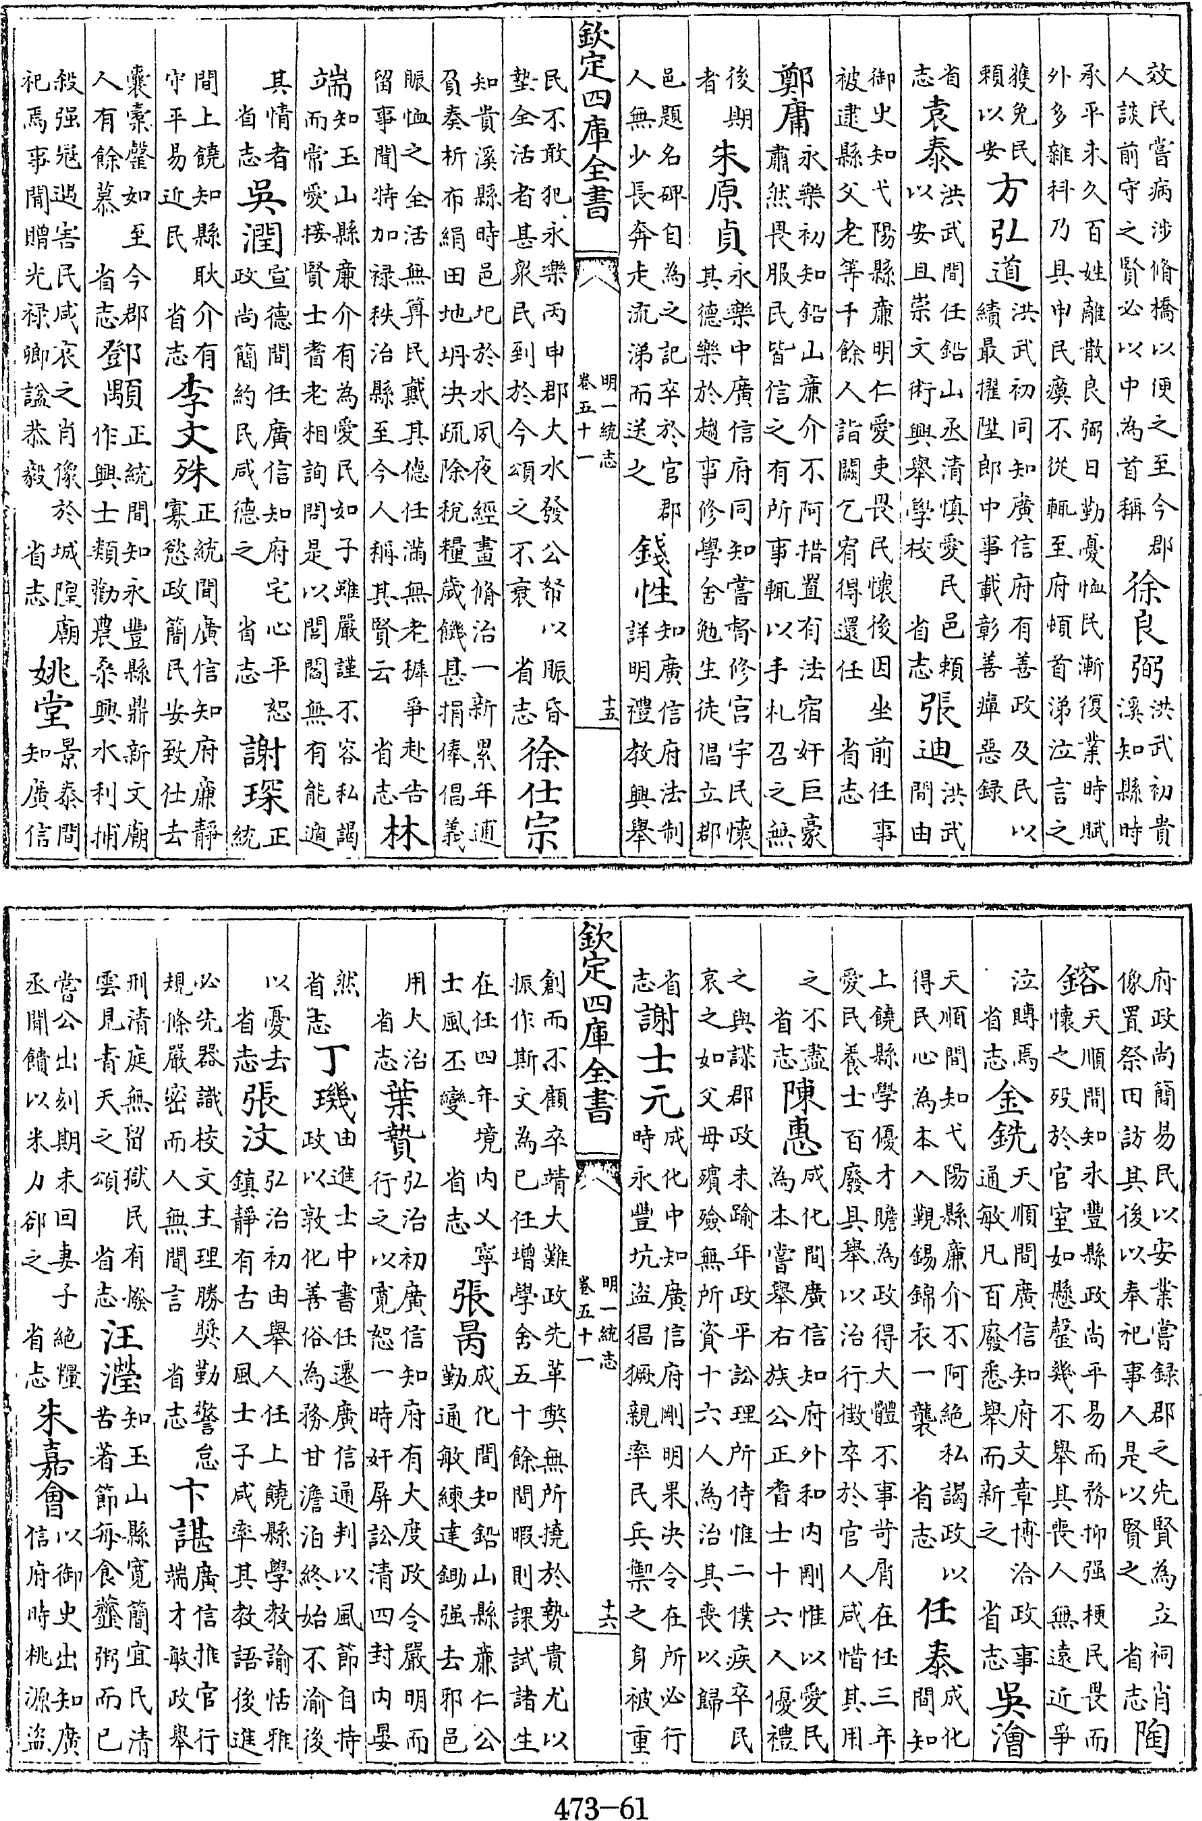 效民嘗病涉脩橋以便之至今郡
人談前守之賢必以中為首稱
徐良弼
洪武初貴
溪知縣時
承平未久百姓離散良弼日勤憂恤民漸復業時賦
外多雜科乃具申民瘼不從輒至府頓首涕泣言之
獲免民
頼以安
方弘道
洪武初同知廣信府有善政及民以
績最擢陞郎中事載彰善癉惡録
省
志
袁泰
洪武間任鉛山丞清慎愛民邑頼
以安且崇文術興舉學校 省志
張迪
洪武
間由
御史知弋陽縣亷明仁愛吏畏民懷後因坐前任事
被逮縣父老等千餘人詣闕乞宥得還任 省志
鄭庸
永樂初知鉛山亷介不阿措置有法宿奸巨豪
肅然畏服民皆信之有所事輒以手札召之無
後期
者
朱原貞
永樂中廣信府同知嘗督修宮宇民懷
其德樂於趨事修學舍勉生徒倡立郡
邑題名碑自為之記卒於官郡
人無少長奔走流涕而送之
錢性
知廣信府法制
詳明禮教興舉
欽定四庫全書
明一統志
卷五十一
十五
民不敢犯永樂丙申郡大水發公帑以賑昏
墊全活者甚衆民到於今頌之不衰 省志
徐仕宗
知貴溪縣時邑圯於水夙夜經畫脩治一新累年逋
負奏析布絹田地坍決疏除稅糧歲饑甚捐俸倡義
賑恤之全活無算民戴其德任滿無老穉爭赴告
留事聞特加禄秩治縣至今人稱其賢云 省志
林
端
知玉山縣亷介有為愛民如子雖嚴謹不容私謁
而常愛接賢士耆老相詢問是以閭閻無有能適
其情者
省志
吳潤
宣德間任廣信知府宅心平恕
政尚簡約民咸德之 省志
謝琛
正
統
間上饒知縣耿介有
守平易近民 省志
李文殊
正統間廣信知府亷靜
寡慾政簡民安致仕去
囊橐罄如至今郡
人有餘慕 省志
鄧顒
正統間知永豐縣鼎新文廟
作興士類勸農桑興水利捕
殺强冦遇害民咸哀之肖像於城隍廟
祀焉事聞贈光禄卿諡恭毅 省志
姚堂
景泰間
知廣信
府政尚簡易民以安業嘗録郡之先賢為立祠肖
像置祭田訪其後以奉祀事人是以賢之 省志
陶
鎔
天順間知永豐縣政尚平易而務抑强梗民畏而
懷之歿於官室如懸罄幾不舉其喪人無遠近爭
泣賻焉
省志
金銑
天順間廣信知府文章博洽政事
通敏凡百廢悉舉而新之 省志
吳澮
天順間知弋陽縣亷介不阿絶私謁政以
得民心為本入覲錫錦衣一襲 省志
任泰
成化
間知
上饒縣學優才贍為政得大體不事苛屑在任三年
愛民養士百廢具舉以治行徴卒於官人咸惜其用
之不盡
省志
陳惠
成化間廣信知府外和内剛惟以愛民
為本嘗舉右族公正耆士十六人優禮
之與謀郡政未踰年政平訟理所侍惟二僕疾卒民
哀之如父母殯殮無所資十六人為治其喪以歸
省
志
謝士元
成化中知廣信府剛明果決令在所必行
時永豐坑盜猖獗親率民兵禦之身被重
欽定四庫全書
明一統志
卷五十一
十六
創而不顧卒靖大難政先革獘無所撓於勢貴尤以
振作斯文為已任增學舍五十餘間暇則課試諸生
在任四年境内乂寧
士風丕變 省志
張昺
成化間知鉛山縣亷仁公
勤通敏練達鋤强去邪邑
用大治
省志
葉贄
弘治初廣信知府有大度政令嚴明而
行之以寛恕一時奸屏訟清四封内晏
然
省志
丁璣
由進士中書任遷廣信通判以風節自持
政以敦化善俗為務甘澹泊終始不渝後
以憂去
省志
張汶
弘治初由舉人任上饒縣學教諭恬雅
鎮靜有古人風士子咸率其教語後進
必先器識校文主理勝奬勤警怠
規條嚴密而人無間言 省志
卞諶
廣信推官行
端才敏政舉
刑清庭無留獄民有撥
雲見青天之頌 省志
汪瀅
知玉山縣寛簡宜民清
苦著節每食虀粥而已
嘗公出刻期未回妻子絶糧
丞聞饋以米力郤之 省志
朱嘉會
以御史出知廣
信府時桃源盜
473-61